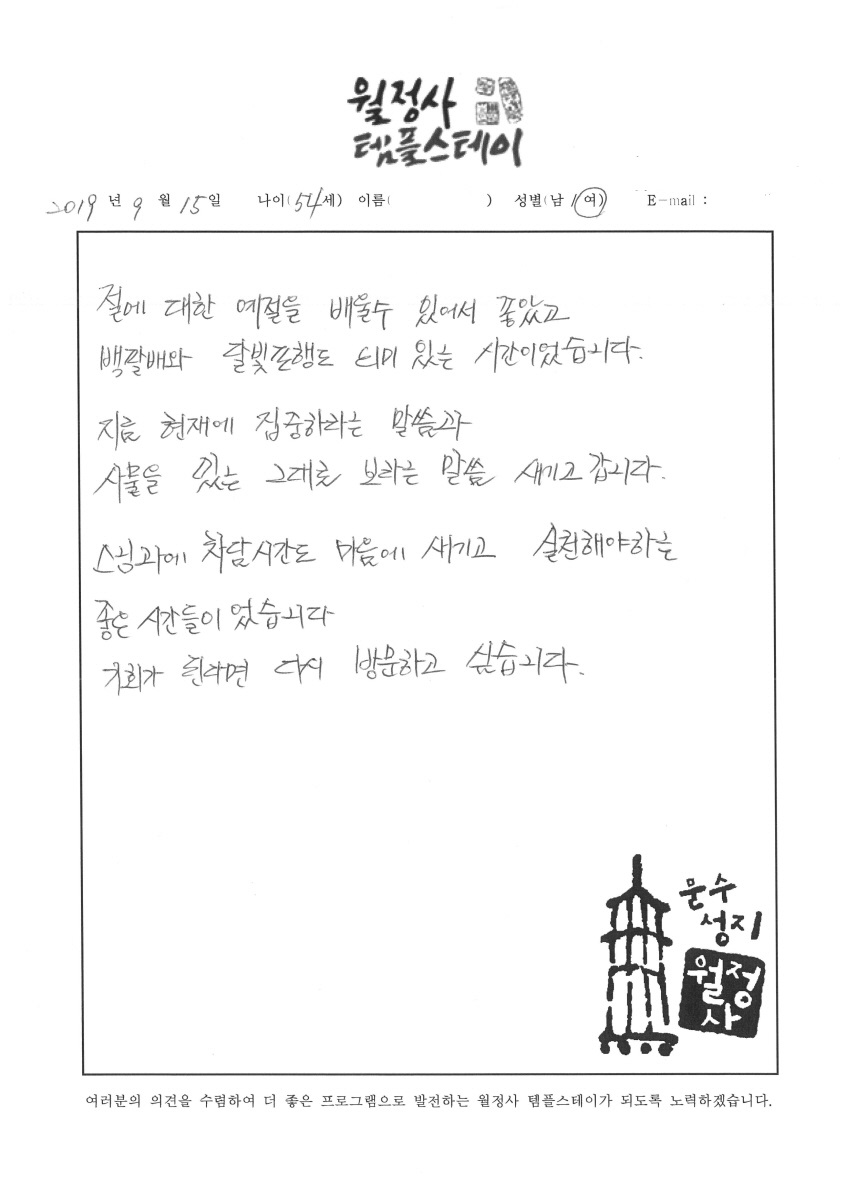 월정사
템플스테이
2019 년 9 월 15 일 나이(54세) 이름( ) 성별(남 / 여) E-mail :
절에 대한 예절을 배울수 있어서 좋았고
백팔배와 달빛포행도 의미 있는 시간이었습니다.
지금 현재에 집중하라는 말씀과
사물을 있는 그대로 보라는 말씀 새기고 갑니다.
스님과에 차담시간도 마음에 새기고 실천해야하는
좋은 시간들이었습니다
기회가 된다면 다시 방문하고 싶습니다.
문수
성지
월정
사
여러분의 의견을 수렴하여 더 좋은 프로그램으로 발전하는 월정사 템플스테이가 되도록 노력하겠습니다.